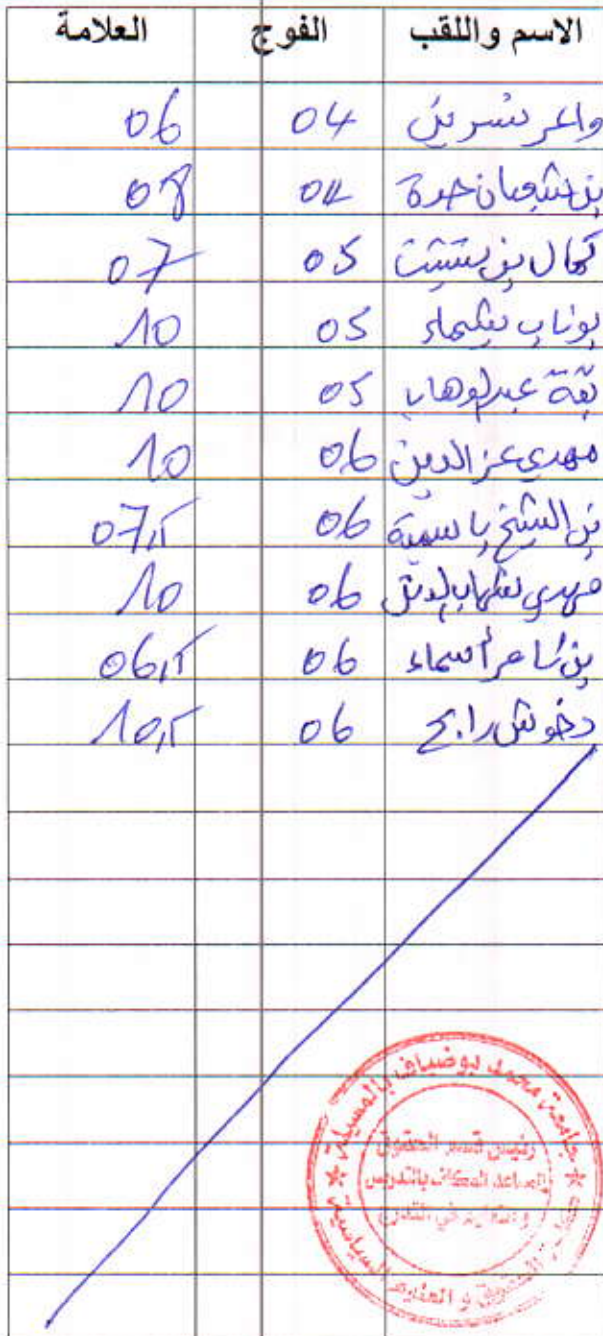 الاسم واللقب الفوج العلامة
واعر نسرين 04 06
بن شعبان حدة 04 08
كمال بن 05 07
بوناب شيماء 05 10
بقة عبد الوهاب 05 10
مهدي عز الدين 06 10
بن الشيخ سمية 06 07,5
مهدي شهاب الدين 06 10
بن أسماء 06 06,5
دخوش رابح 06 10,5
جامعة محمد بوضياف بالمسيلة
رئيس قسم الحقوق
المساعد المكلف بالتدريس
والتعليم في التدرج
الحقوق و العلوم السياسية